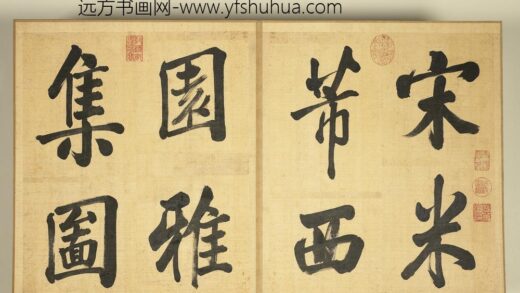 远方书画网-www.yfshuhua.com
宋米
芾西
園雅
集圖